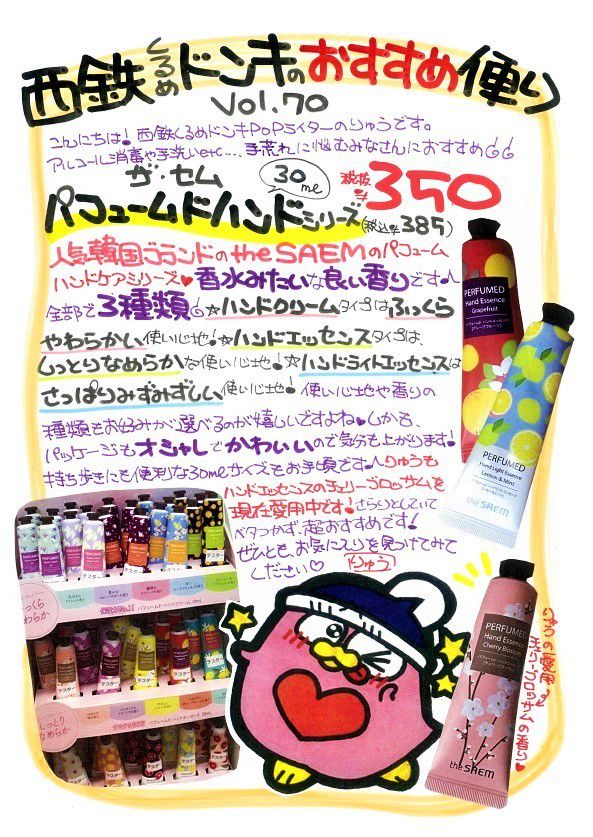 西鉄くるめドンキのおすすめ便り
Vol.70
こんにちは！西鉄くるめドンキPOPライターのりゅうです。
アルコール消毒や手洗いetc...、手荒れに悩むみなさんにおすすめ
ザ・セム
30ml
税抜¥350
パフュームドハンドシリーズ(税込¥385)
人気韓国ブランドのthe SAEMのパフューム
ハンドケアシリーズ♥香水みたいな良い香りです♪
全部で3種類☆ハンドクリームタイプはふっくら
やわらかい使い心地！☆ハンドエッセンスタイプは、
しっとりなめらかな使い心地！☆ハンドライトエッセンスは
さっぱりみずみずしい使い心地！使い心地や香りの
種類もお好みが選べるのが嬉しいですよね♥しかも、
パッケージもオシャレでかわいいので気分も上がります！
持ち歩きにも便利な30mlサイズもお手頃です♪りゅうも
ハンドエッセンスのチェリーブロッサムを
現在愛用中です！さらりとしていて
ベタつかず、超おすすめです！
ぜひとも、お気に入りを見つけてみて
ください♡
りゅう
PERFUMED
Hand Essence
Grapefruit
PERFUMED
Hand Light Essence
Lemon & Mint
the SAEM
PERFUMED
Hand Essence
Cherry Blossom
the SAEM
りゅうの愛用
チェリーブロッサムの香り♥
っくら
わらかい
パフュームド ハンドクリーム 30ml
しっとり
なめらか
パフュームド ハンドエッセンス 30ml
テスター
テスター
テスター